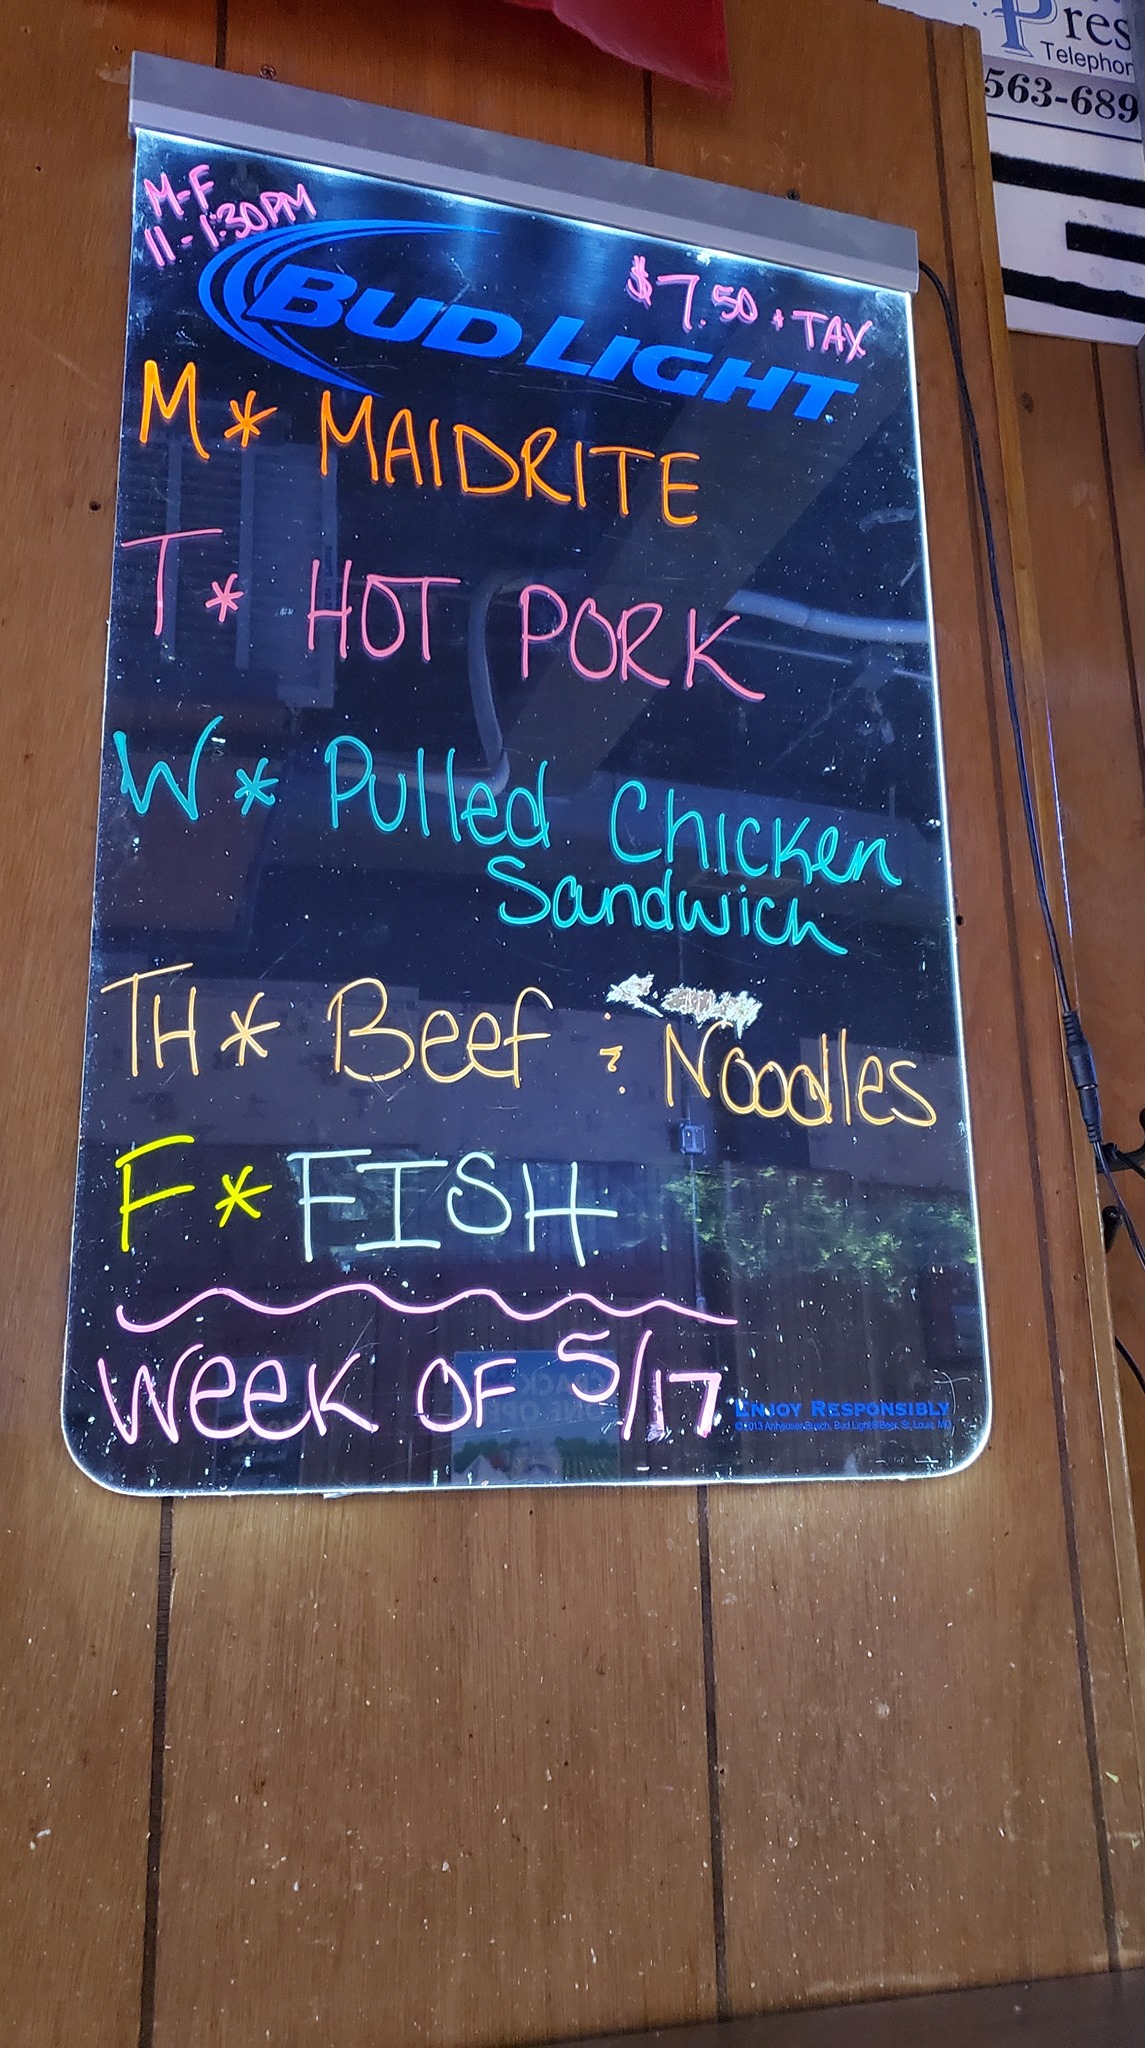 Pres
Telephon
563-689
M-F
11-1:30PM
$7.50 + TAX
BUD LIGHT
M* MAIDRITE
T* HOT PORK
W* Pulled Chicken
Sandwich
TH* Beef & Noodles
F* FISH
Week OF 5/17
ENJOY RESPONSIBLY
©2013 Anheuser-Busch, Bud Light® Beer, St. Louis, MO